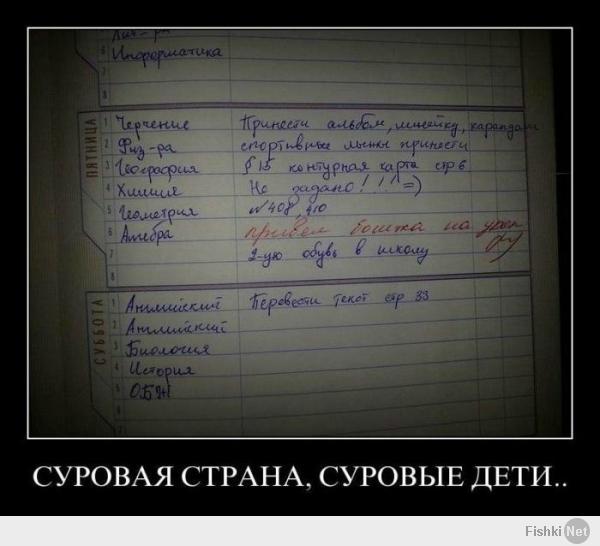 Лит-ра
6 Информатика
7
8
ПЯТНИЦА
1 Черчение Принести альбом, линейку, карандаш
2 Физ-ра спортивные лыжи принести
3 География § 15 контурная карта стр 6
4 Химия Не задано!!!! =)
5 Геометрия №408, 410
6 Алгебра привел бомжа на урок
7 2-ую обувь в школу
8
СУББОТА
1 Английский Перевести текст стр 33
2 Английский
3 Биология
4 История
5 ОБЖ
6
7
СУРОВАЯ СТРАНА, СУРОВЫЕ ДЕТИ..
Fishki Net